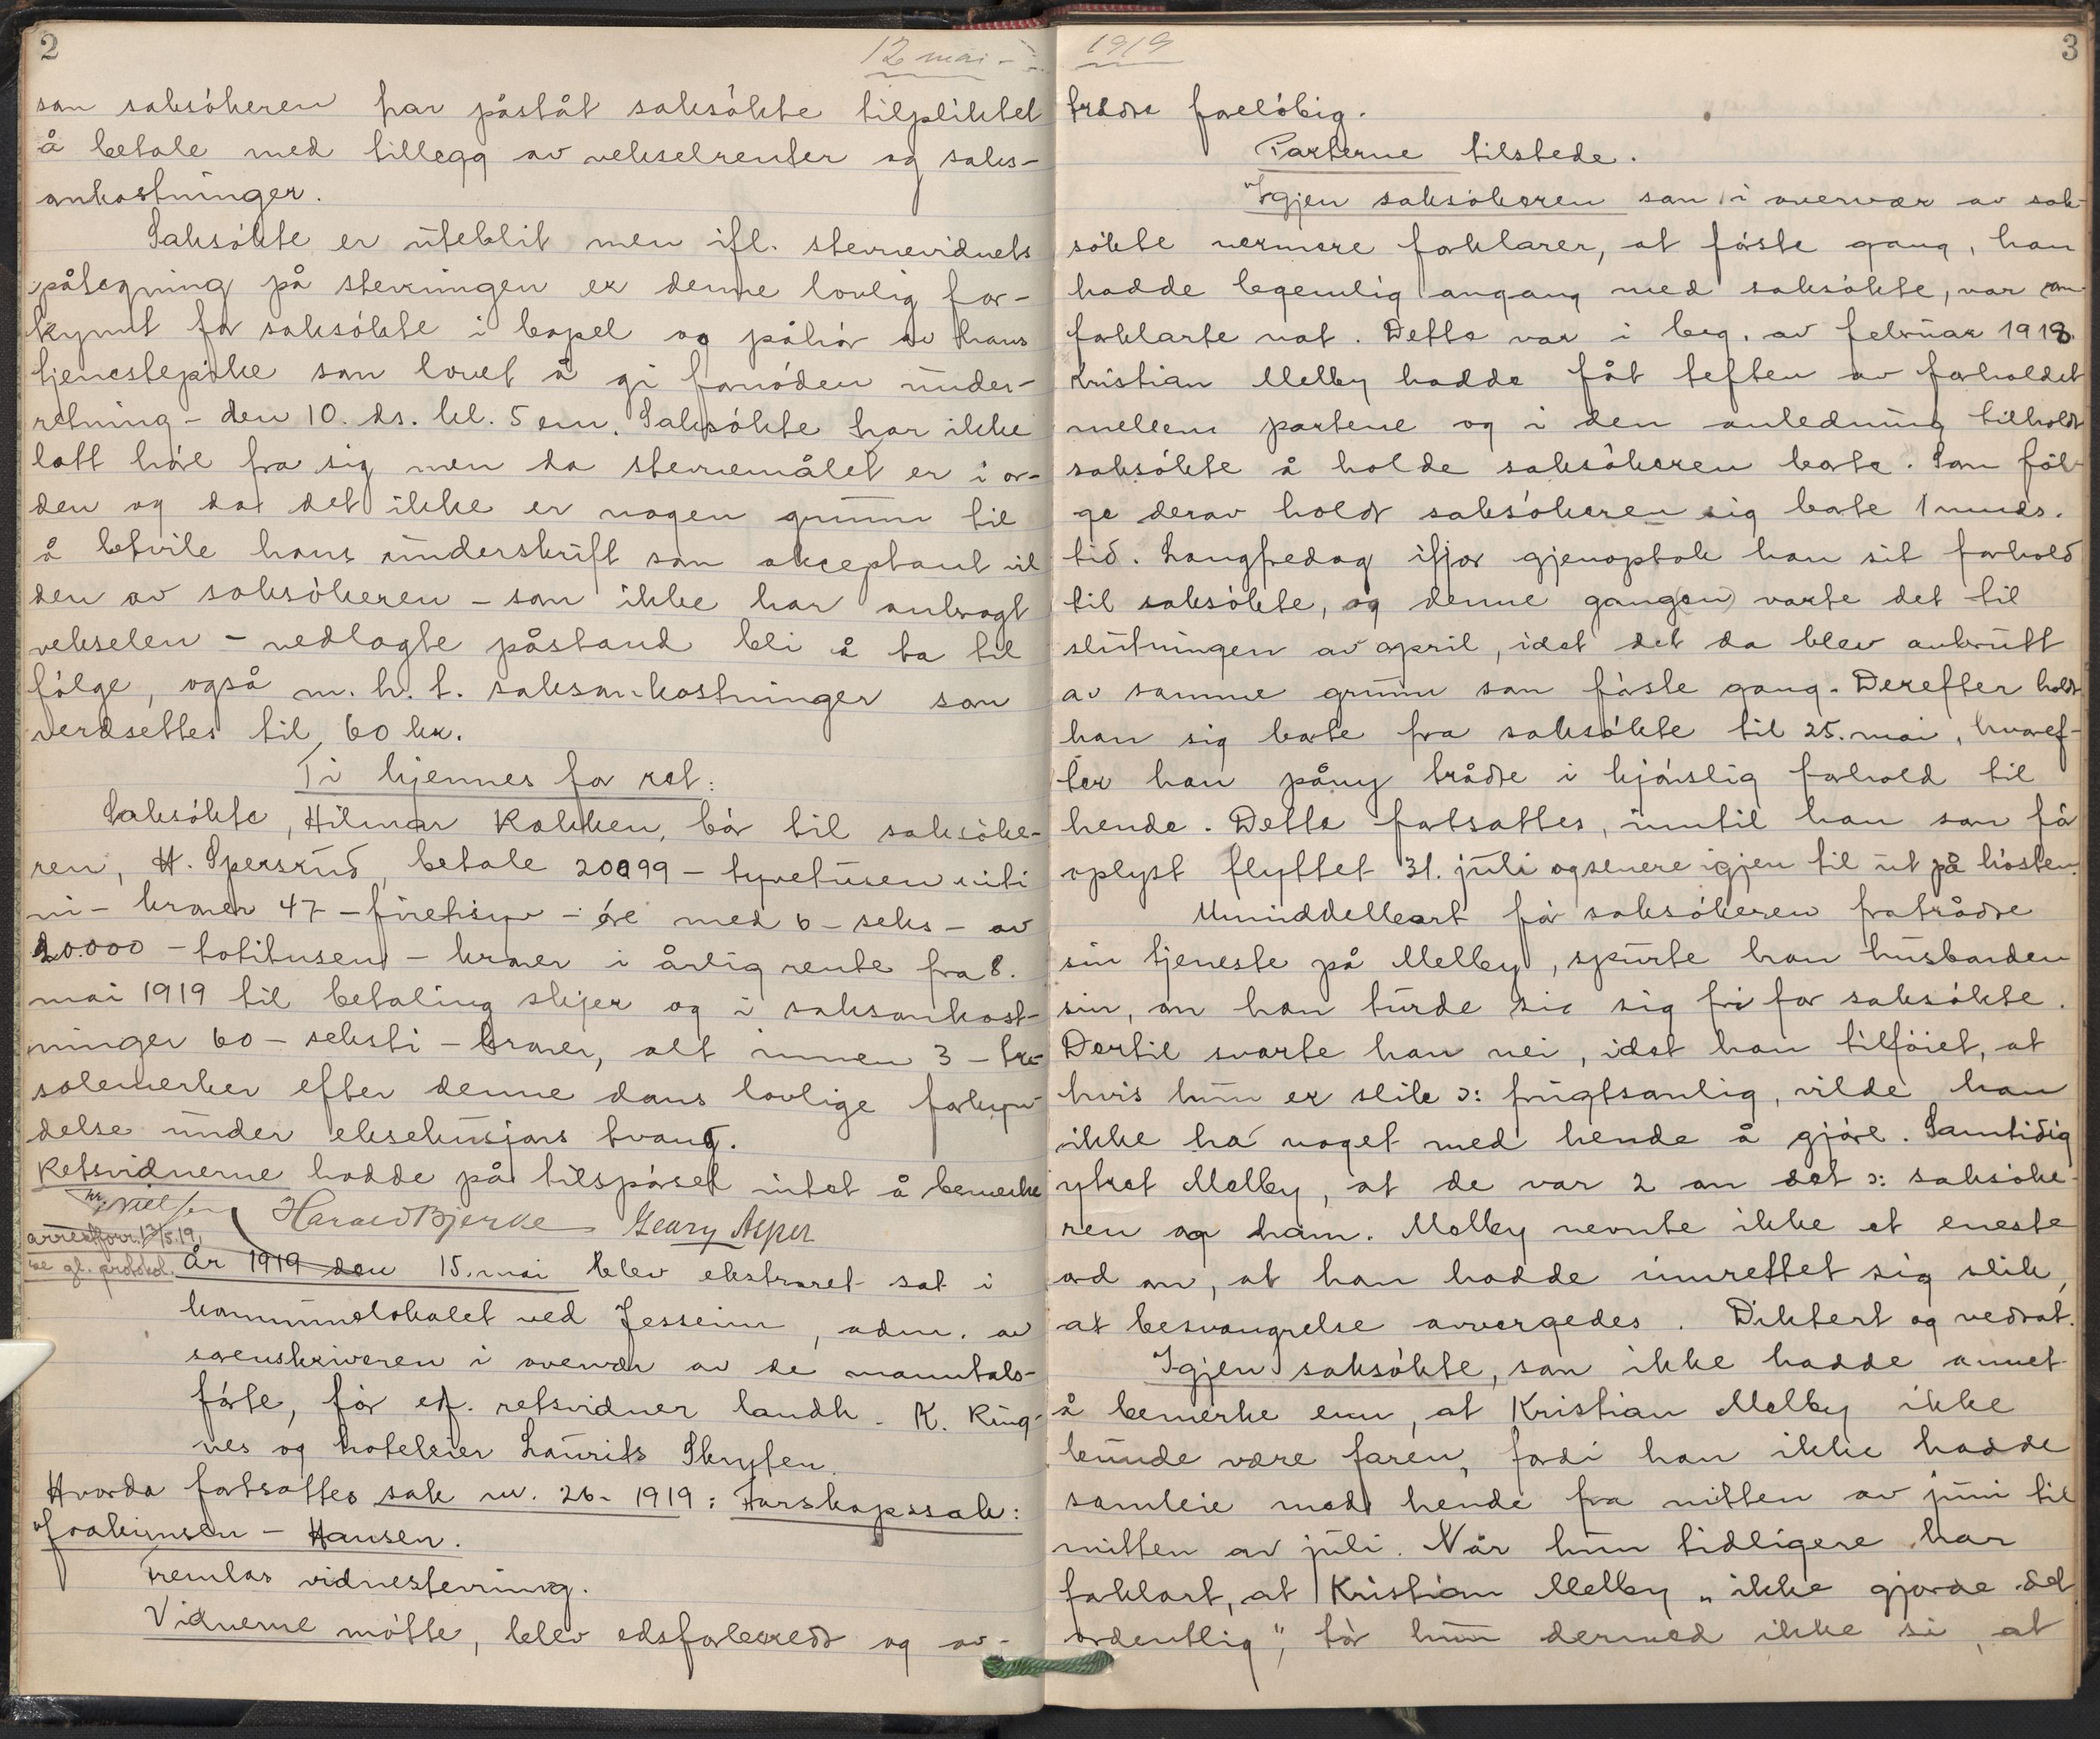 2
12 mai -
som saksökeren har påståt saksökte tilpliktet
å betale med tillegg av vekselrenter og saks-
omkostninger.
Saksökte er uteblit men ifl. stevnevidnets
påtegning på stevningen er denne lovlig for-
kynt for saksökte i bopel og påhör av hans
tjenestepike som lovet å gi fornöden under-
retning - den 10. ds. kl. 5 em. Saksökte har ikke
latt höre fra sig men da stevnemålet er i or-
den og da det ikke er nogen grunn til
å betvile hans underskrift som akceptant vil
den av saksökeren - som ikke har anbragt
vekselen - nedlagte påstand bli å ta til
fölge, også m. h. t. saksomkostninger som
verdsettes til 60 kr.
Ti kjennes for ret:
Saksökte, Hilmar Kokken, bör til saksöke-
ren, H. Spersrud, betale 20099 - tyvetusen nitti
ni - kroner 47 - firetisyv - öre med 6 - seks - av
20.000 - totitusen - kroner i årlig rente fra 8.
mai 1919 til betaling skjer og i saksomkost-
ninger 60 - seksti - kroner, alt innen 3 - tre
solemerker efter denne doms lovlige forkyn-
delse under eksekusjons tvang.
Retsvidnerne hadde på tilspörsel intet å bemerke
Nielsen Harald Bjerke Georg Asper
arrestforr. 13/5.19,
se gl. protokol.
År 1919 den 15. mai blev ekstraret sat i
kommunelokalet ved Jesseim, adm. av
sorenskriveren i overvær av de manntals-
förte, för edf. retsvidner landh. K. Ring-
nes og hoteleier Laurits Skryten.
Hvorda fortsattes sak nr. 26 - 1919: Farskapssak:
Joakimsen - Hansen.
Fremlas vidnestevning.
Vidnerne mötte, blev edsforberedt og av-
1919
3
trådte foreløbig.
Parterne tilstede.
Igjen saksökeren som i overvær av sak-
sökte nermere forklarer, at förste gang, han
hadde legemlig omgang med saksökte, var om-
forklarte nat. Dette var i beg. av februar 1918.
Kristian Melby hadde fåt teften av forholdet
mellem partene og i den anledning tilholdt
saksökte å holde saksökeren borte. Som föl-
ge derav holdt saksökeren sig borte 1 mnds.
tid. Langfredag ifjor gjenoptok han sit forhold
til saksökte, og denne gang(en) varte det til
slutningen av april, idet det da blev avbrutt
av samme grunn som förste gang. Derefter holdt
han sig borte fra saksökte til 25. mai, hvoref-
ter han påny trådte i kjönslig forhold til
hende. Dette fortsattes, inntil han som för
oplyst flyttet 31. juli og senere igjen til ut på hösten.
Umiddelbart för saksökeren fratrådte
sin tjeneste på Melby, spurte han husbonden
sin, om han turde si sig fri for saksökte.
Dertil svarte han nei, idet han tilföiet, at
hvis hun er slik ɔ: frugtsomlig, vilde han
ikke ha noget med hende å gjöre. Samtidig
ytret Melby, at de var 2 om det ɔ: saksöke-
ren og ham. Melby nevnte ikke et eneste
ord om, at han hadde innrettet sig slik,
at besvangrelse avvergedes. Diktert og vedtat.
Igjen saksökte, som ikke hadde annet
å bemerke enn, at Kristian Melby ikke
kunde være faren, fordi han ikke hadde
samleie med hende fra mitten av juni til
mitten av juli. Når hun tidligere har
forklart, at Kristian Melby „ikke gjorde det
ordentlig", tör hun dermed ikke si, at